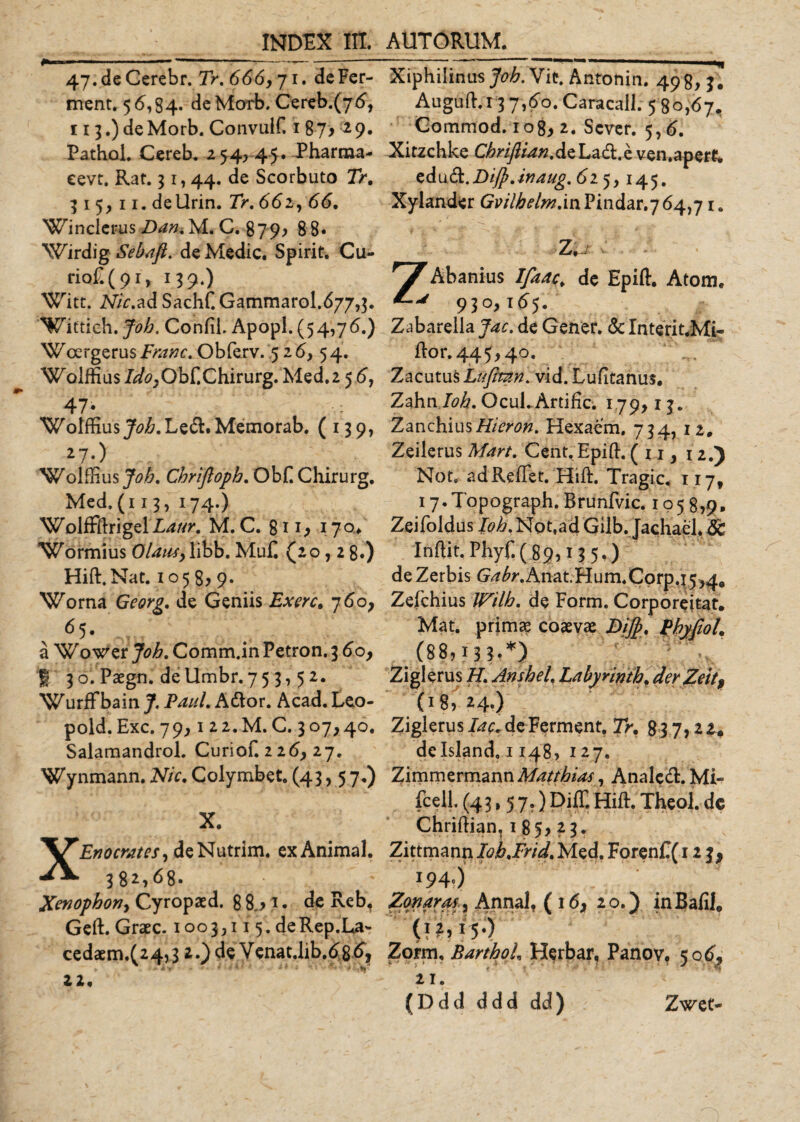 INDEX III. AUTORUM.
47. de Cerebr. Tr. 666, 71. de Fer-
ment. 56, 84. de Morb. Cereb. (76,
113.) de Morb. Convulſ. 187, 29.
Pathol. Cereb. 254, 45. Pharma-
cevt. Rat. 31, 44. de Scorbuto Tr.
315, 11. de Urin. Tr. 662, 66.
Winclerus Dan. M. C. 879, 88.
Wirdig Sebaſt. de Medic. Spirit. Cu-
rioſ. (91, 139.)
Witt. Nic. ad Sachſ. Gammarol. 677, 3.
Wittich. Joh. Conſil. Apopl. (54, 76.)
Woergerus Franc. Obſerv. 526, 54.
Wolffius Ido, Obſ. Chirurg. Med. 256,
47.
Wolffius Joh. Lect. Memorab. (139,
27.)
Wolffius Joh. Chriſtoph. Obſ. Chirurg.
Med. (113, 174.)
Wolffſtrigel Laur. M. C. 811, 170.
Wormius Olaus, libb. Muſ. (20, 28.)
Hiſt. Nat. 1058, 9.
Worna Georg. de Geniis Exerc. 760,
65.
à Wower Joh. Comm. in Petron. 360,
30. Pægn. de Umbr. 753, 52.
Wurffbain J. Paul. Actor. Acad. Leo-
pold. Exc. 79, 122. M. C. 307, 40.
Salamandrol. Curioſ. 226, 27.
Wynmann. Nic. Colymbet. (43, 57.)
X.
XEnocrates, de Nutrim. ex Animal.
382, 68.
Xenophon, Cyropæd. 88, 1. de Reb.
Geſt. Græc. 1003, 115. de Rep. La-
cedæm. (24, 32.) de Venat. lib. 686,
22.
Xiphilinus Joh. Vit. Antonin. 498, 3.
Auguſt. 137, 60. Caracall. 580, 67.
Commod. 108, 2. Sever. 5, 6.
Xitzchke Chriſtian. de Lact. è ven. apert.
educt. Diſp. inaug. 625, 145.
Xylander Gvilhelm. in Pindar. 764, 71.
Z.
ZAbanius Iſaac, de Epiſt. Atom.
930, 165.
Zabarella Jac. de Gener. & Interit. Mi-
ſtor. 445, 40.
Zacutus Luſitan. vid. Luſitanus.
Zahn Ioh. Ocul. Artific. 179, 13.
Zanchius Hieron. Hexaëm. 734, 12.
Zeilerus Mart. Cent. Epiſt. (11, 12.)
Not. ad Reſſet. Hiſt. Tragic. 117,
17. Topograph. Brunſvic. 1058, 9.
Zeiſoldus Ioh. Not. ad Gilb. Jachaël. &
Inſtit. Phyſ. (89, 135.)
de Zerbis Gabr. Anat. Hum. Corp. 15, 4.
Zeſchius Wilh. de Form. Corporeitat.
Mat. primæ coævæ Diſp. Phyſiol.
(88, 133.*)
Ziglerus H. Anshel. Labyrinth. der Zeit,
(18, 24.)
Ziglerus Iac. de Ferment. Tr. 837, 22.
de Island. 1148, 127.
Zimmermann Matthias, Analect. Mi-
ſcell. (43, 57.) Diſſ. Hiſt. Theol. de
Chriſtian. 185, 23.
Zittmann Ioh. Frid. Med. Forenſ. (123,
194.)
Zonaras, Annal. (16, 20.) in Baſil.
(12, 15.)
Zorm. Barthol. Herbar. Panov. 506,
21.
(Ddd ddd dd) Zwet-